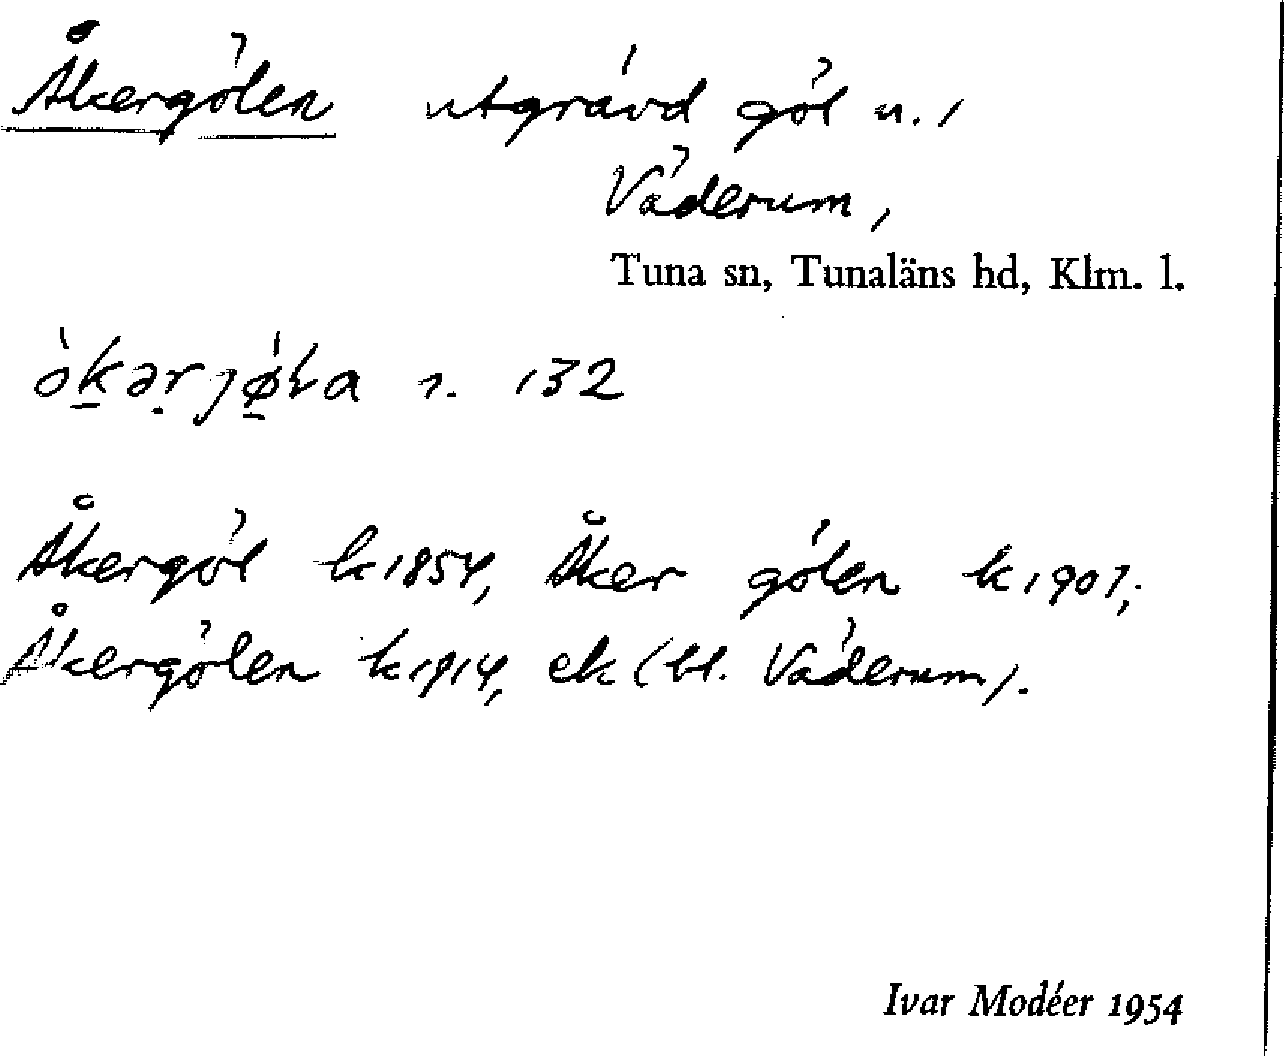 Åkergölen utgrävd göl n. /
Väderum,
Tuna sn, Tunaläns hd, Klm. l.
132
Åkergöl k 1854, Åker gölen k 1907;
Åkergölen k 1914, ek (bl. Väderum).
Ivar Modéer 1954